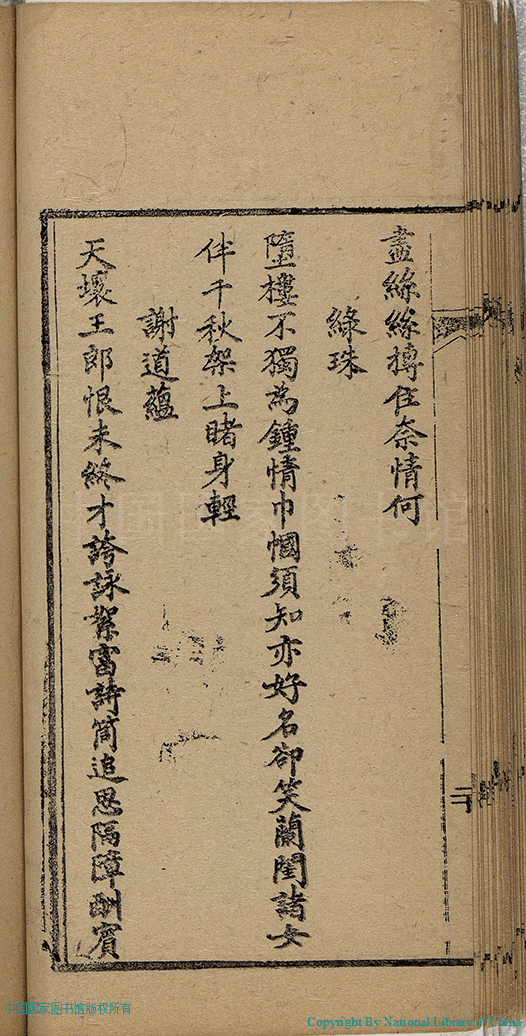 盡絲絲摶住奈情何
綠珠
墮樓不獨為鍾情巾幗須知亦好名卻笑蘭閨諸女
伴千秋架上睹身輕
謝道蘊
天壤王郎恨未終才誇詠絮富詩筒追思隔障酬賓
二
中国国家图书馆版权所有
Copyright By National Library of China